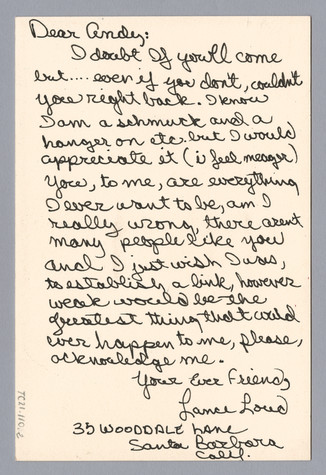 Dear Andy:
I doubt If you'll come
but.... even if you don't, couldn't
you right back. I know
I am a schmuck and a
hanger on etc. but I would
appreciate it (i feel meager)
You, to me, are everything
I ever want to be, am I
really wrong, there arent
many people like you
and I just wish I was,
to establish a link, however
weak would be the
greatest thing that could
ever happen to me, please,
acknowledge me.
Your Ever Friend,
Lance Loud
35 WOODDALE LANE
Santa Barbara
Calif.
TC21.110.2